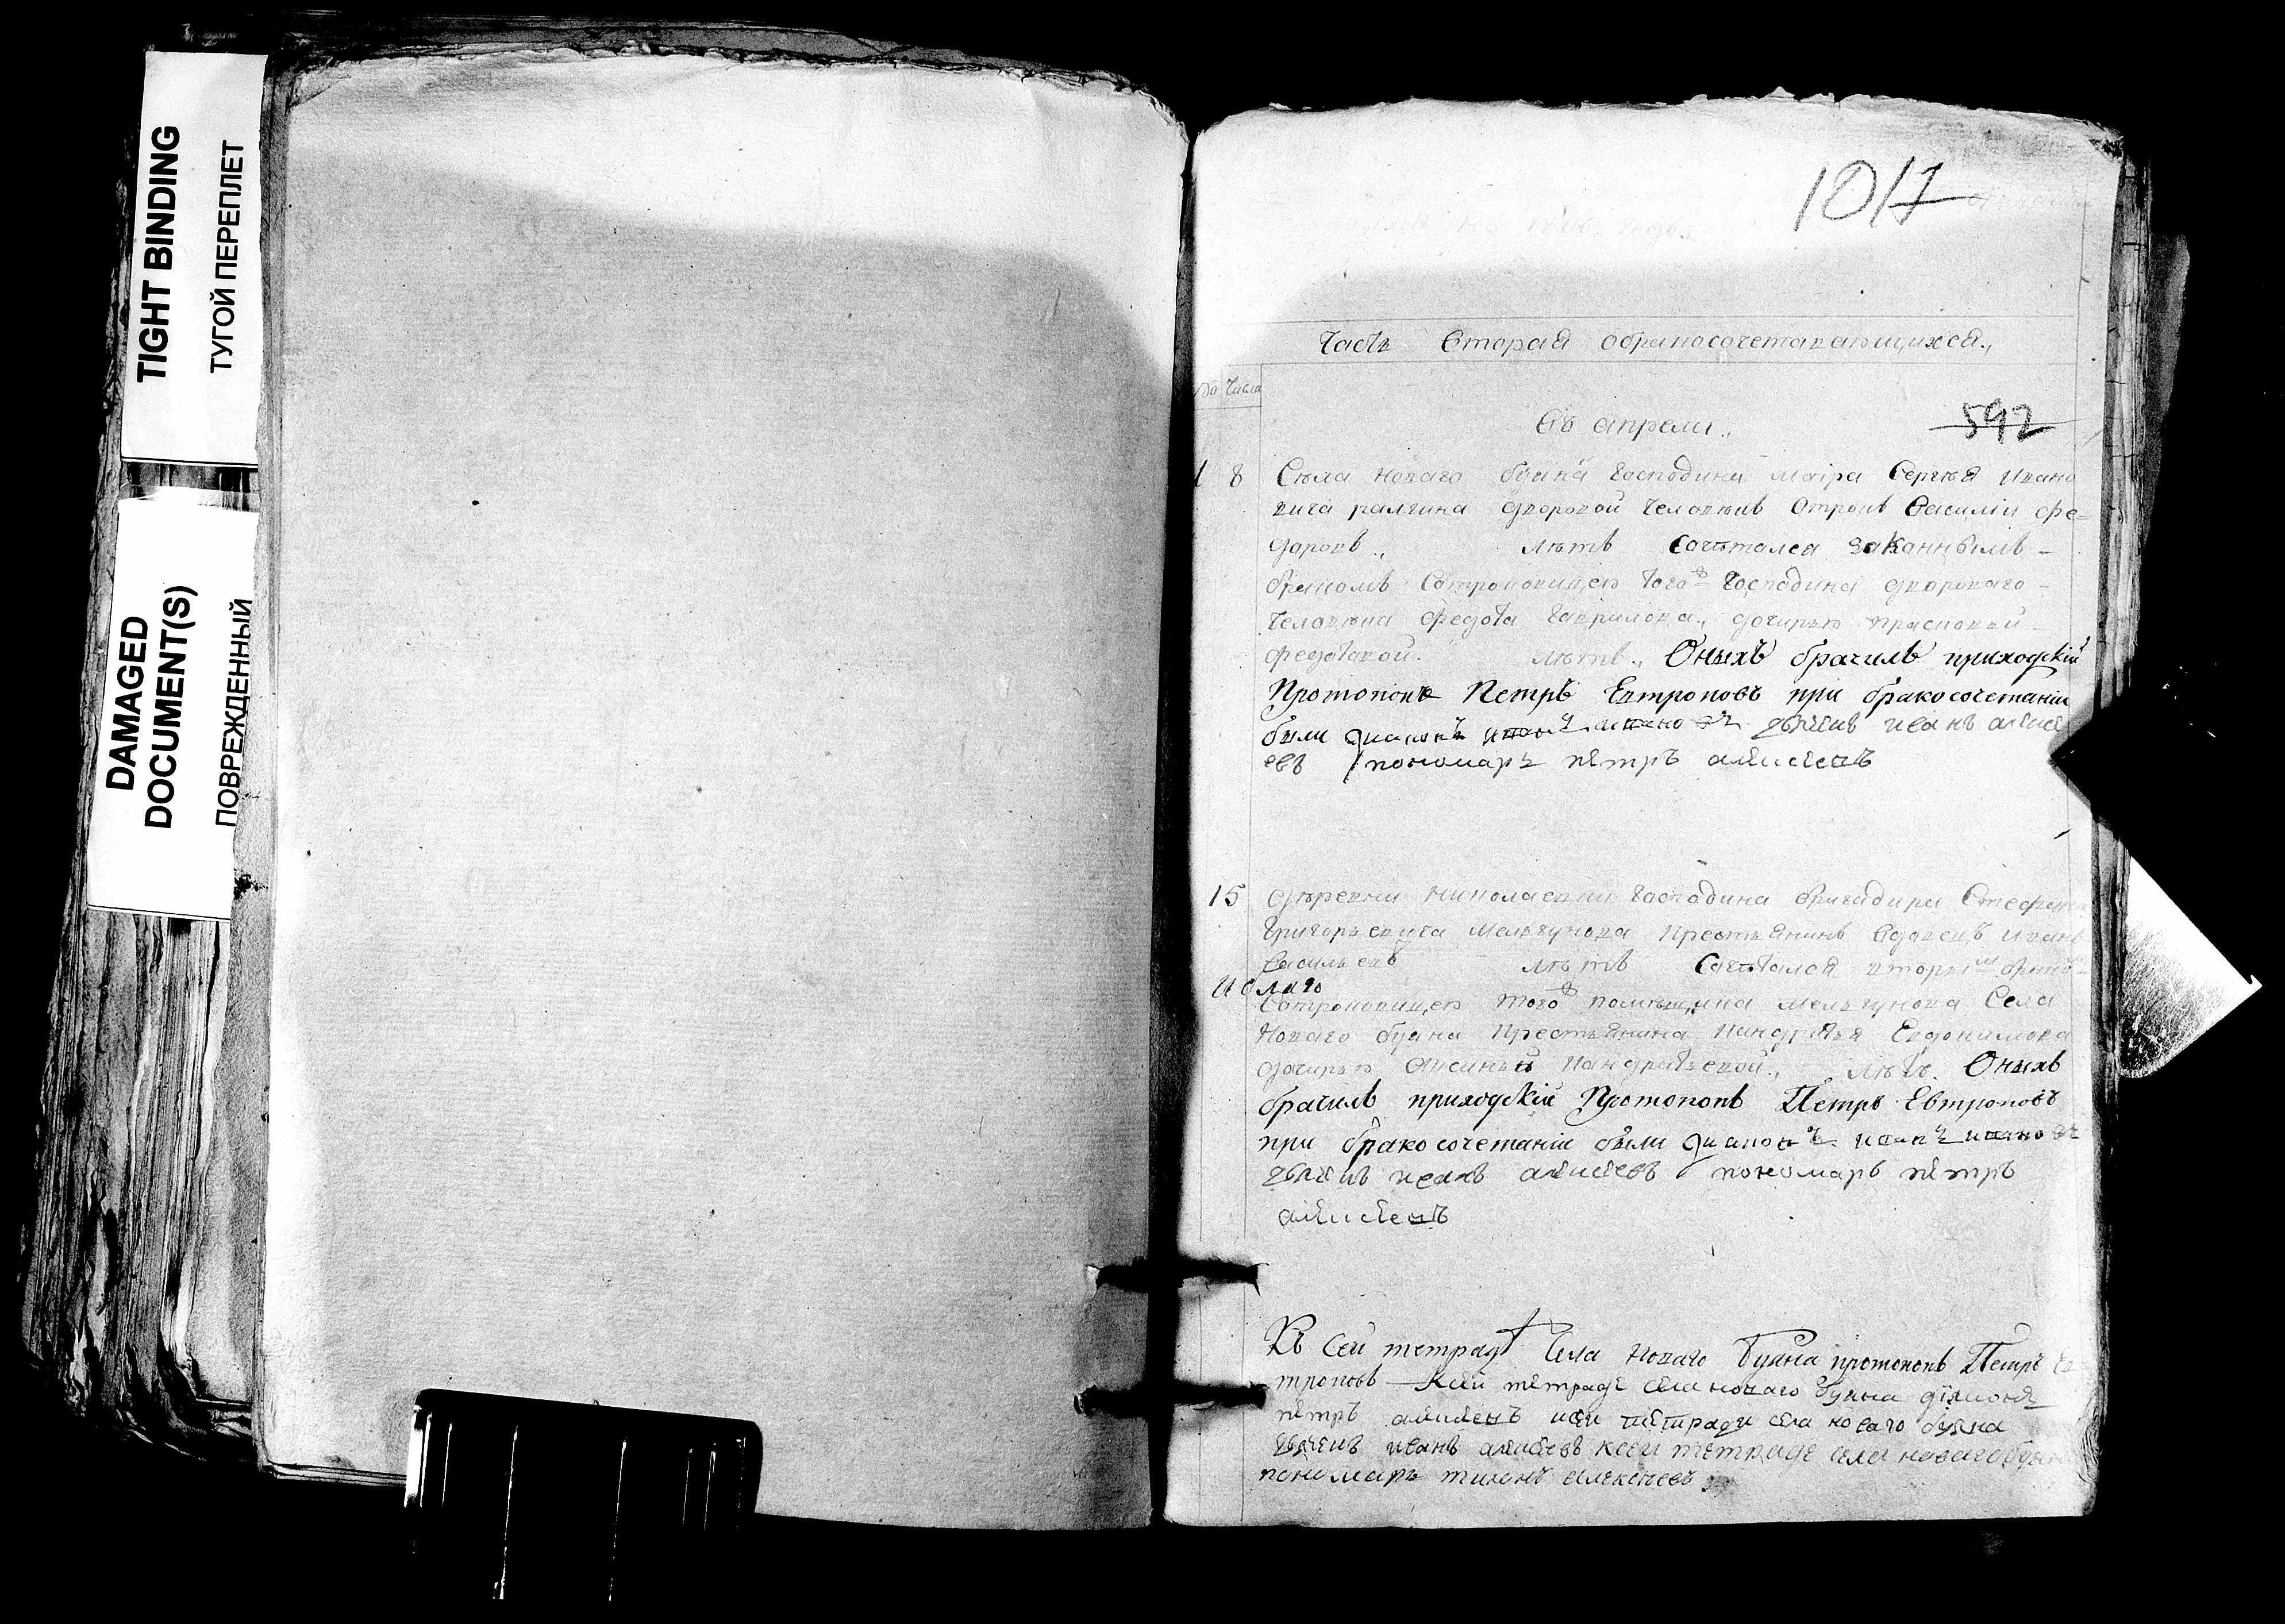 TIGHT BINDING
ТУГОЙ ПЕРЕПЛЕТ
DAMAGED
DOCUMENT(S)
ПОВРЕЖДЕННЫЙ
1017
Часть Вторая обракосочетавающихся.,
Числа
Въ апрели.,
592
1 8 Села новаго буяна господина маіора Сергѣя Ивано
вича ралгина дворовой человѣкъ отрокъ Василіи фе=
даровъ., лѣтъ Сочѣтался законнымъ –
бракомъ Сотроковицею того ж господина дворового –
человѣка федота гаврилова., дочирью прасковьей
федотовой. лѣтъ., Оныхъ брачилъ приходскій
Протопопъ Петръ Евтроповъ при бракосочетаніи
были диаконъ иванъ ивановъ дьячекъ иванъ алексе
евъ пономарь петръ алексеевъ
15 Деревни николаевки господина бригадира Стефана
Григорьевича Мельгунова крестьянинъ вдовецъ иванъ
васильевъ лѣтъ Сочѣтался вторымъ бракомъ
Сотроковицею того ж помѣщика мельгунова Села
Новаго буяна крестьянина кандратья Евдокимова
дочирью аксиньей кандратьевой., лѣтъ. Оныхъ
брачилъ приходскій Протопопъ Петръ Евтроповъ
при бракосочетаніи были диаконъ иванъ ивановъ
дьячекъ иванъ алексеевъ пономарь петръ
алексеевъ
Къ сей тетради Села Новаго Буяна протопопъ Петръ Ев
троповъ Ксей тетраде села новаго буяна
петръ алексеевъ ксеи тетради села новаго буяна
дьячекъ иванъ алексеевъ ксеи тетраде села новаго буяна
пономарь тихонъ алексеевъ